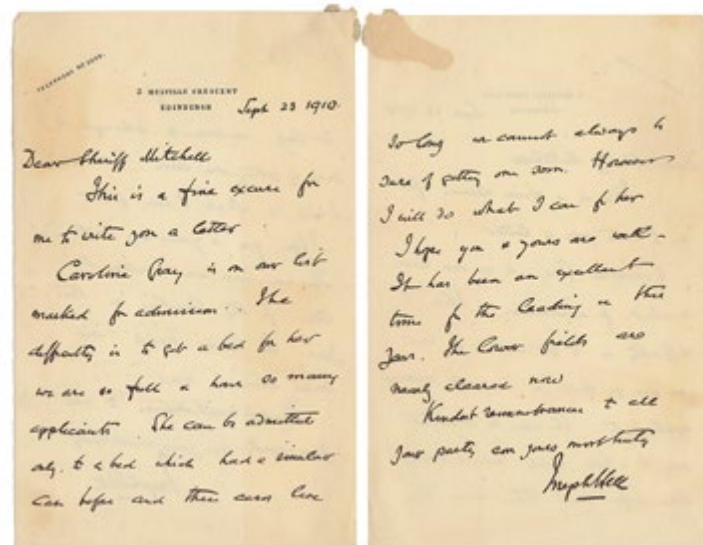 TELEPHONE
2 MELVILLE CRESCENT
EDINBURGH
Sept 23 1910.
Dear Sheriff Mitchell
This is a fine excuse for
me to write you a letter
Caroline Gray is on our list
marked for admission. The
difficulty is to get a bed for her
we are so full & have so many
applicants. She can be admitted
only to a bed which had a similar
case before and these cases live
so long we cannot always be
sure of getting one soon. However
I will do what I can for her
I hope you & yours are well -
It has been an excellent
time for the leading in this
year. The lower fields are
nearly cleared now
Kindest remembrances to all
your party ever yours most truly
Joseph Bell